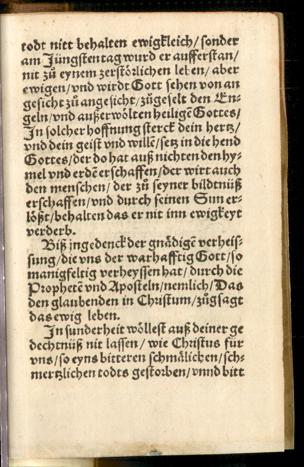 todt nitt behalten ewigkleich / sonder
am Jüngsten tag wurd er aufferstan /
nit zů eynem zerstörlichen leben / aber
ewigen / vnd wirdt Gott sehen von an
gesicht zů angesicht / zůgeselt den En-
geln / vnd außerwölten heiligē Gottes /
In solcher hoffnung sterck dein hertz /
vnd dein geist vnd willē / setz in die hend
Gottes / der do hat auß nichten den hy-
mel vnd erdē erschaffen / der wirt auch
den menschen / der zů seyner bildtnüß
erschaffen / vnd durch seinen Sun er-
lößt / behalten das er nit inn ewigkeyt
verderb.
Biß jngedenck der gnädigē verheis-
sung / die vns der warhafftig Gott / so
manigfeltig verheyssen hat / durch die
Prophetē vnd Aposteln / nemlich / Das
den glaubenden in Christum / zůgsagt
das ewig leben.
In sunderheit wöllest auß deiner ge
dechtnüß nit lassen / wie Christus für
vns / so eyns bitteren schmälichen / sch-
mertzlichen todts gestorben / vnnd bitt